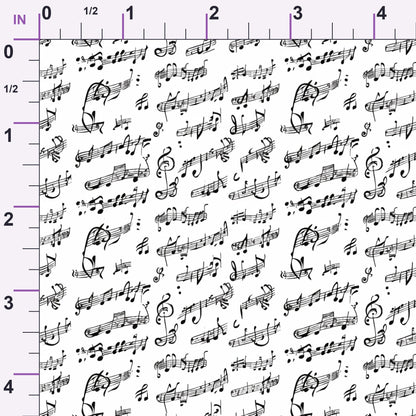 IN 0 1/2 1 2 3 4
0
1/2
1
2
3
4